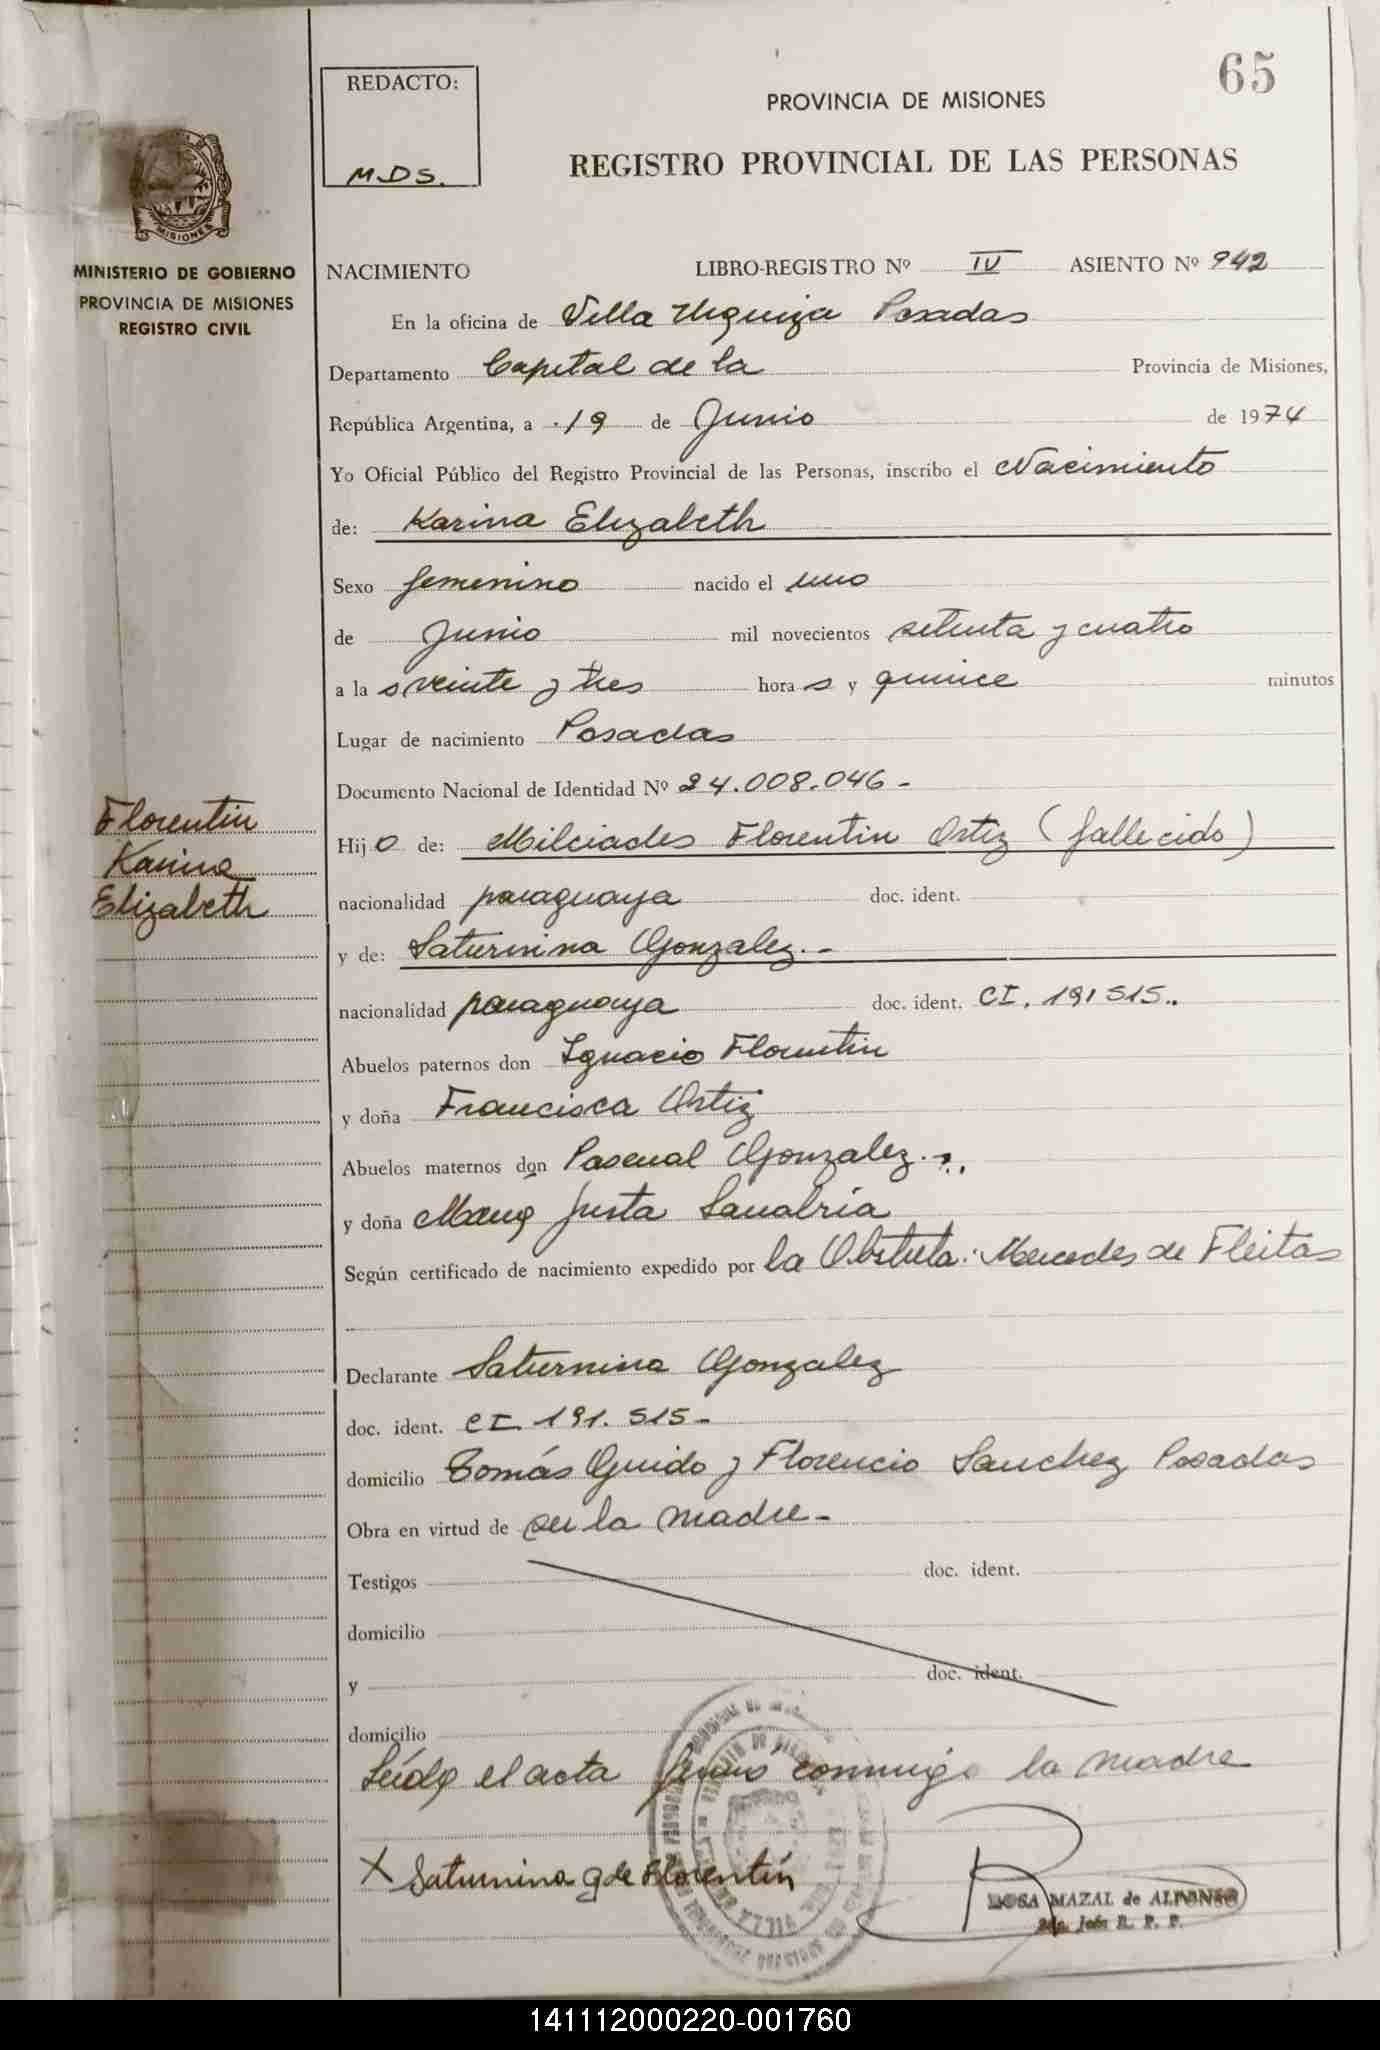 65
REDACTO:
M.D.S.
PROVINCIA DE MISIONES
REGISTRO PROVINCIAL DE LAS PERSONAS
MISIONES
MINISTERIO DE GOBIERNO
PROVINCIA DE MISIONES
REGISTRO CIVIL
NACIMIENTO LIBRO-REGISTRO Nº IV ASIENTO Nº 942
En la oficina de Villa Urquiza Posadas
Departamento Capital de la Provincia de Misiones,
República Argentina, a 19 de Junio de 1974
Yo Oficial Público del Registro Provincial de las Personas, inscribo el Nacimiento
de: Karina Elizabeth
Sexo femenino nacido el uno
de Junio mil novecientos setenta y cuatro
a la s veinte y tres hora s y quince minutos
Lugar de nacimiento Posadas
Documento Nacional de Identidad Nº 24.008.046-
Florentin
Karina
Elizabeth
Hij o de: Milciades Florentin Ortiz (fallecido)
nacionalidad paraguaya doc. ident.
y de: Saturnina Gonzalez.-
nacionalidad paraguaya doc. ident. CI. 191515..
Abuelos paternos don Ignacio Florentin
y doña Francisca Ortiz
Abuelos maternos don Pascual Gonzalez
y doña Justa Sanabria
Según certificado de nacimiento expedido por la Obstetra: Mercedes de Fleitas
Declarante Saturnina Gonzalez
doc. ident. CI 191.515-
domicilio Tomás Guido y Florencio Sanchez Posadas
Obra en virtud de ser la madre-
Testigos doc. ident.
domicilio
y doc. ident.
domicilio
Leída el acta firmó conmigo la madre
X Saturnina G de Florentín
ROSA MAZAL de ALFONSO
R. P. P.
141112000220-001760